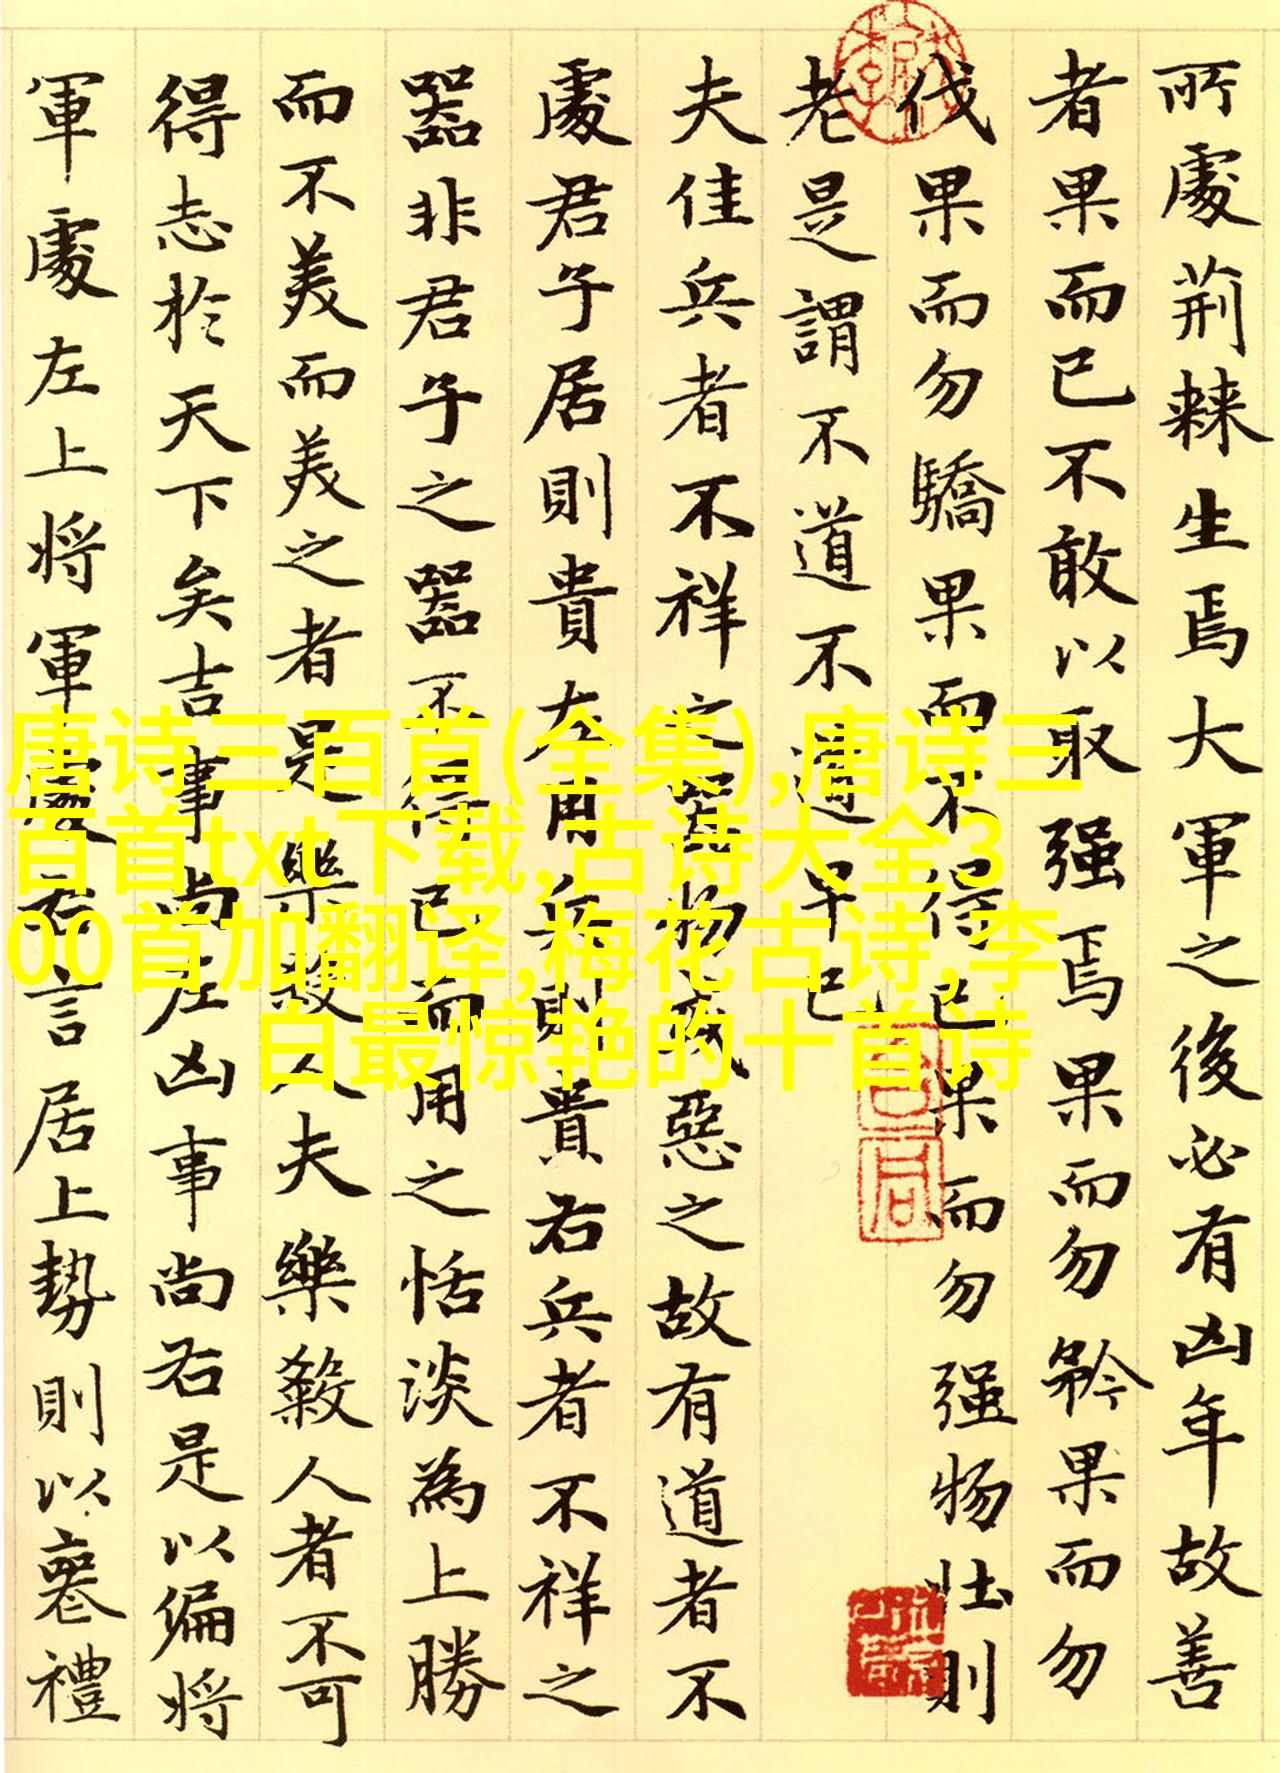 所處荊棘生焉大軍之後必有凶年故善
者果而已不敢以取强焉果而勿矜果而勿
伐果而勿驕果而不得已果而勿强物壮則
老是謂不道不道早已
夫佳兵者不祥之器物或惡之故有道者不
處君子居則貴左用兵則貴右兵者不祥之
器非君子之器不得已而用之恬淡為上勝
而不美而美之者是樂殺人夫樂殺人者不可
得志於天下矣吉事尚左凶事尚右是以偏將
軍處左上將軍處右言居上勢則以喪禮
唐诗三百首(全集),唐诗三
百首txt下载,古诗大全3
00首加翻译,梅花古诗,李
白最惊艳的十首诗